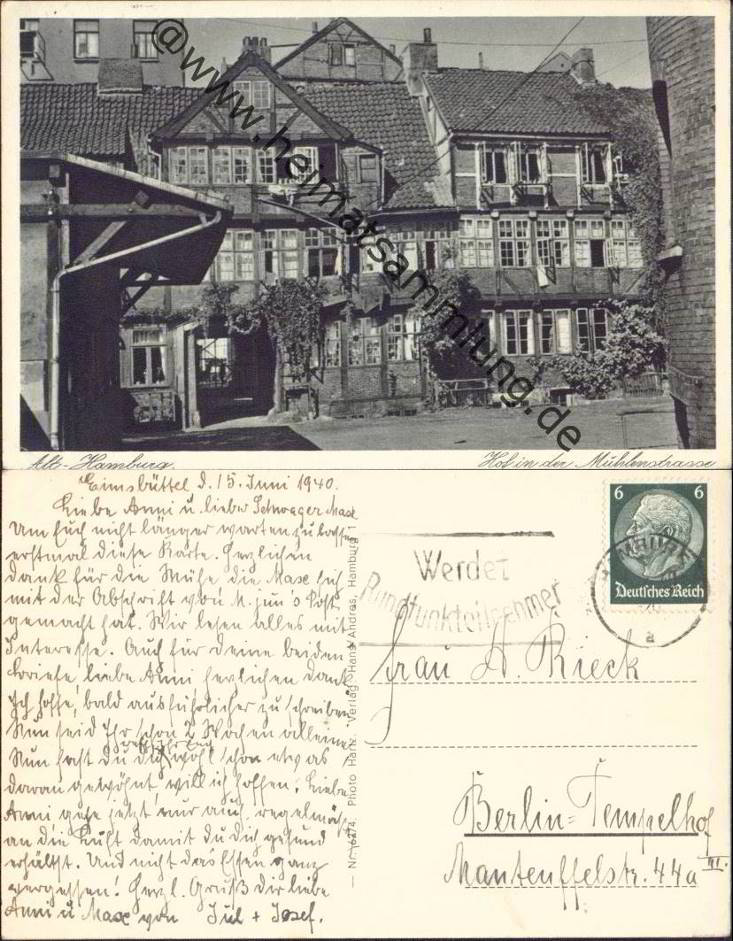 @www.heimatsammlung.de
Alt-Hamburg.
Hof in der Mühlenstrasse
Eimsbüttel d. 15. Juni 1940.
Liebe Anni u. lieber Max
Um Euch nicht länger warten zu lassen
erstmal diese Karte. Herzlichen
Dank für die Mühe die Max sich
mit der Abschrift von M. jun's Post
gemacht hat. Wir lesen alles mit
Interesse. Auch für deine beiden
Briefe liebe Anni herzlichen Dank
Ich hoffe, bald ausführlicher zu schreiben
Nun seid Ihr schon 2 Wochen alleine
Nun hast du dich wohl schon etwas
daran gewöhnt, will ich hoffen. Liebe
Anni gehe jetzt nur auch regelmäß
an die Luft damit du dich gesund
erhältst. Und nicht das Essen ganz
vergessen! Herzl. Gruß Dir liebe
Anni u Max von Jul + Josef.
— Nr. 16274 Photo Hartz. Verlag Hans Andres, Hamburg 1
Werdet
Rundfunkteilnehmer
6 6
Deutsches Reich
HAMBURG
a
Frau A. Rieck
Berlin-Tempelhof
Manteuffelstr. 44a III.